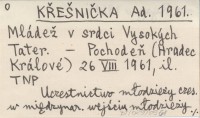 O KŘEŠNIČKA Ad. 1961.
Mládež v srdci Vysokých
Tater. - Pochodeň (Hradec
Králové) 26 VIII 1961, il.
TNP
Uczestnictwo młodzieży czes.
w międzynar. wejściu młodzieży